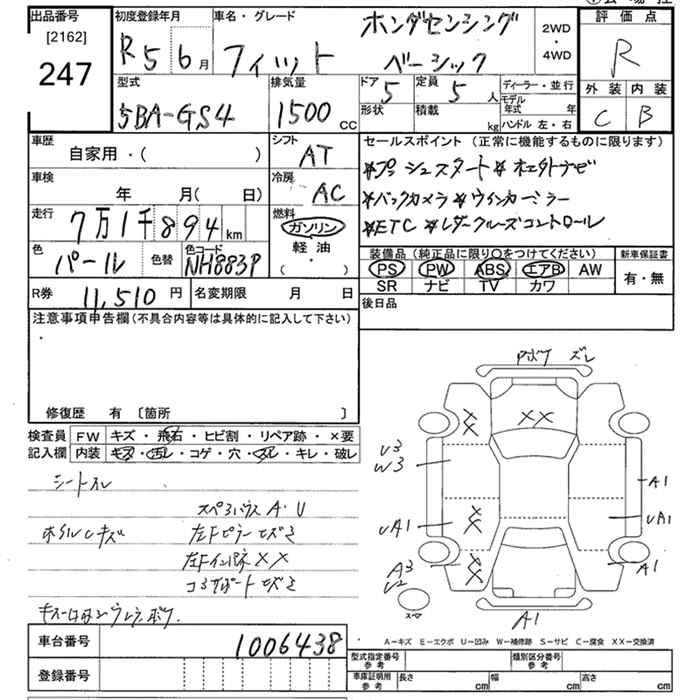 出品番号
[2162]
247
初度登録年月
R5 6月
車名・グレード
ホンダセンシング
フィット ベーシック
2WD
・
4WD
評価点
R
外装 内装
C B
型式
5BA-GS4
排気量
1500 CC
ドア 5
形状
定員 5 人
積載 kg
ディーラー・並行
モデル年式 年
ハンドル 左・右
車歴
自家用・( )
シフト
AT
車検
年 月( 日)
冷房
AC
走行
7万1千894km
燃料
ガソリン
軽油
( ・ )
色
パール
色替
色コード
NH883P
R券 11,510 円
名変期限 月 日
セールスポイント (正常に機能するものに限ります)
*プッシュスタート *
*バックカメラ *ウインカーミラー
*ETC *レダークルーズコントロール
装備品 (純正品に限り○をつけてください)
PS PW ABS エアB AW
SR ナビ TV カワ
新車保証書
有・無
後日品
注意事項申告欄(不具合内容等は具体的に記入して下さい)
修復歴 有 〔箇所 〕
検査員
記入欄
FW キズ・飛石・ヒビ割・リペア跡・×要
内装 キズ・汚レ・コゲ・穴・スレ・キレ・破レ
シートスレ
A・U
ホイルキズ
左Fピラー
左Fインパネ XX
Pボウ ズレ
XX
U3
W3
UA1
A3
U2
A1
UA1
A1
A1
A-キズ E-エクボ U-凹み W-補修跡 S-サビ C-腐食 XX-交換済
車台番号 1006438
登録番号
型式指定番号
参考
類別区分番号
参考
車庫証明用
参考
長さ cm 幅 cm 高さ cm